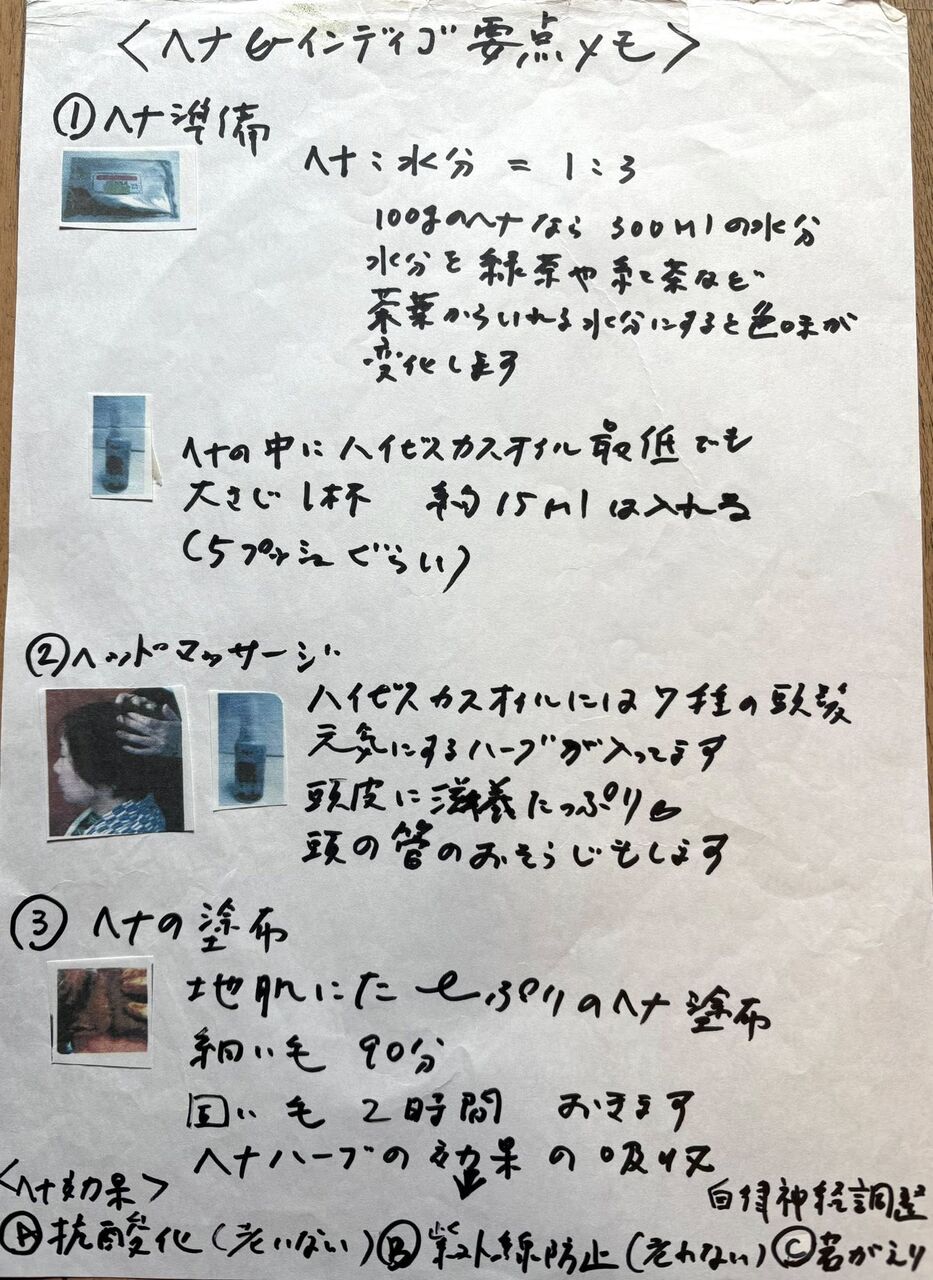 <ヘナ&インディゴ要点メモ>
①ヘナ準備
ヘナ:水分 = 1:3
100gのヘナなら 300Mlの水分
水分を緑茶や紅茶など
茶葉からいれる水分にすると色味が
変化します
ヘナの中にハイビスカスオイル最低でも
大さじ1杯 約15Mlは入れる
(5プッシュぐらい)
②ヘッドマッサージ
ハイビスカスオイルには7種の頭髪
元気にするハーブが入ってます
頭皮に滋養たっぷり&
頭の管のおそうじもします
③ ヘナの塗布
地肌にたっぷりのヘナ塗布
細い毛 90分
固い毛 2時間 おきます
ヘナハーブの効果の吸収
<ヘナ効果>
自律神経調整
Ⓐ抗酸化(老いない)Ⓑ紫外線防止(老れない)Ⓒ若がえり